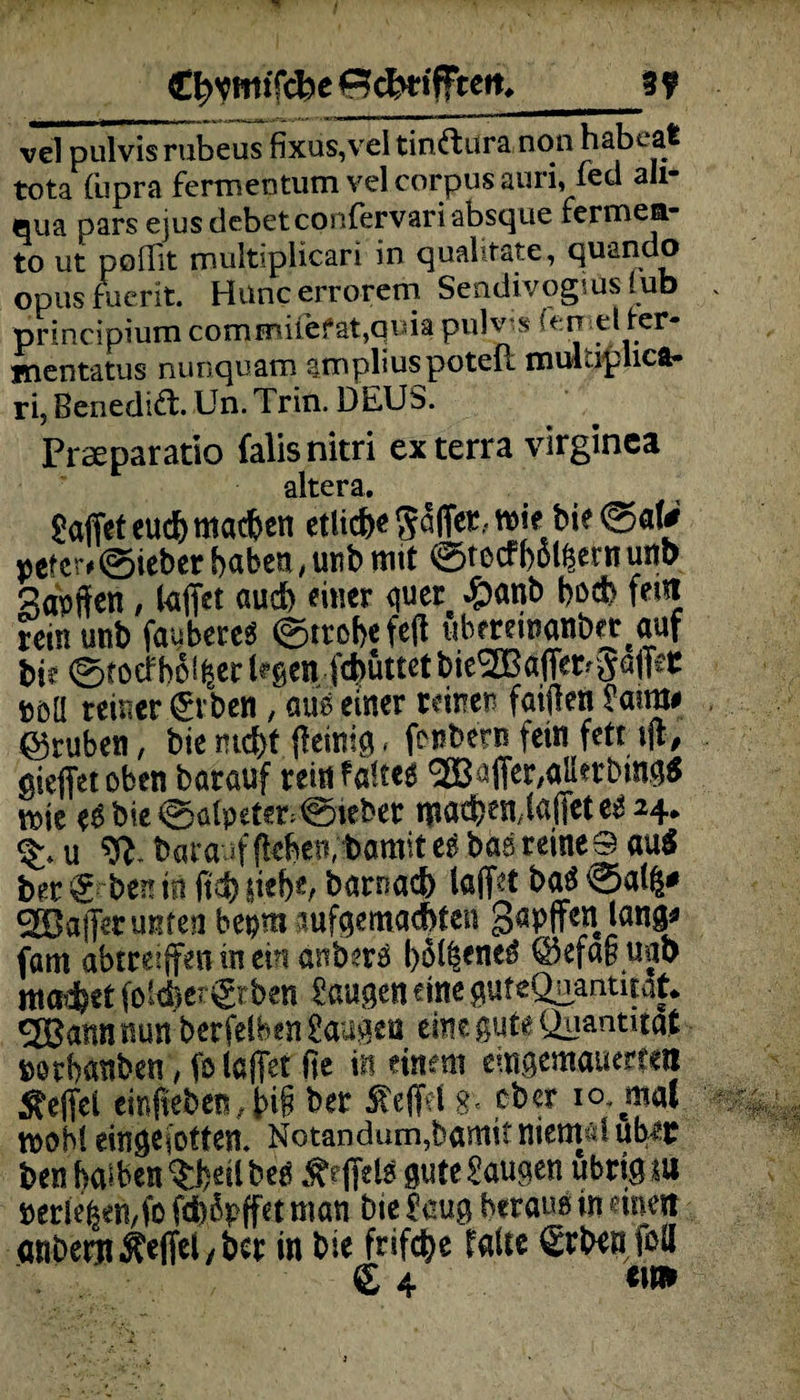 Chymiſche Schrifften. 37
vel pulvis rubeus fixus, vel tinctura non habeat
tota ſupra fermentum vel corpus auri, ſed ali-
qua pars ejus debet conſervari absque fermen-
to ut poſſit multiplicari in qualitate, quando
opus fuerit. Hunc errorem Sendivogius ſub
principium commiſerat, quia pulvis ſemel fer-
mentatus nunquam amplius poteſt multiplica-
ri, Benedict. Un. Trin. DEUS.
Præparatio ſalis nitri ex terra virginea
altera.
Laſſet euch machen etliche Fäſſer, wie die Sal-
peter-Sieder haben, und mit Stockhöltzern und
Zapffen, laſſet auch einer quer Hand hoch fein
rein und ſauberes Strohe feſt übereinander auf
die Stockhöltzer legen, ſchüttet die Waſſer-Fäſſer
voll reiner Erden, aus einer reinen faiſten Laim-
Gruben, die nicht ſteinig, ſondern fein fett iſt,
gieſſet oben darauf rein kaltes Waſſer, allerdings
wie es die Salpeter-Sieder machen, laſſet es 24.
u darauf ſtehen, damit es das reine aus
der Erden in ſich ziehe, darnach laſſet das Saltz-
Waſſer unten beym aufgemachten Zapffen lang-
ſam abtreiffen in ein anders höltzenes Gefäß und
machet ſolcher Erden Laugen eine gute Quantität.
Wann nun derſelben Laugen eine gute Quantität
vorhanden, ſo laſſet ſie in einem eingemauerten
Keſſel einſieden, biß der Keſſel 8. oder 10. mal
wohl eingeſotten. Notandum, damit niemal über
den halben Theil des Keſſels gute Laugen übrig zu
verletzen, ſo ſchöpffet man die Laug heraus in einen
andern Keſſel, der in die friſche kalte Erden ſoll
E 4 ein-